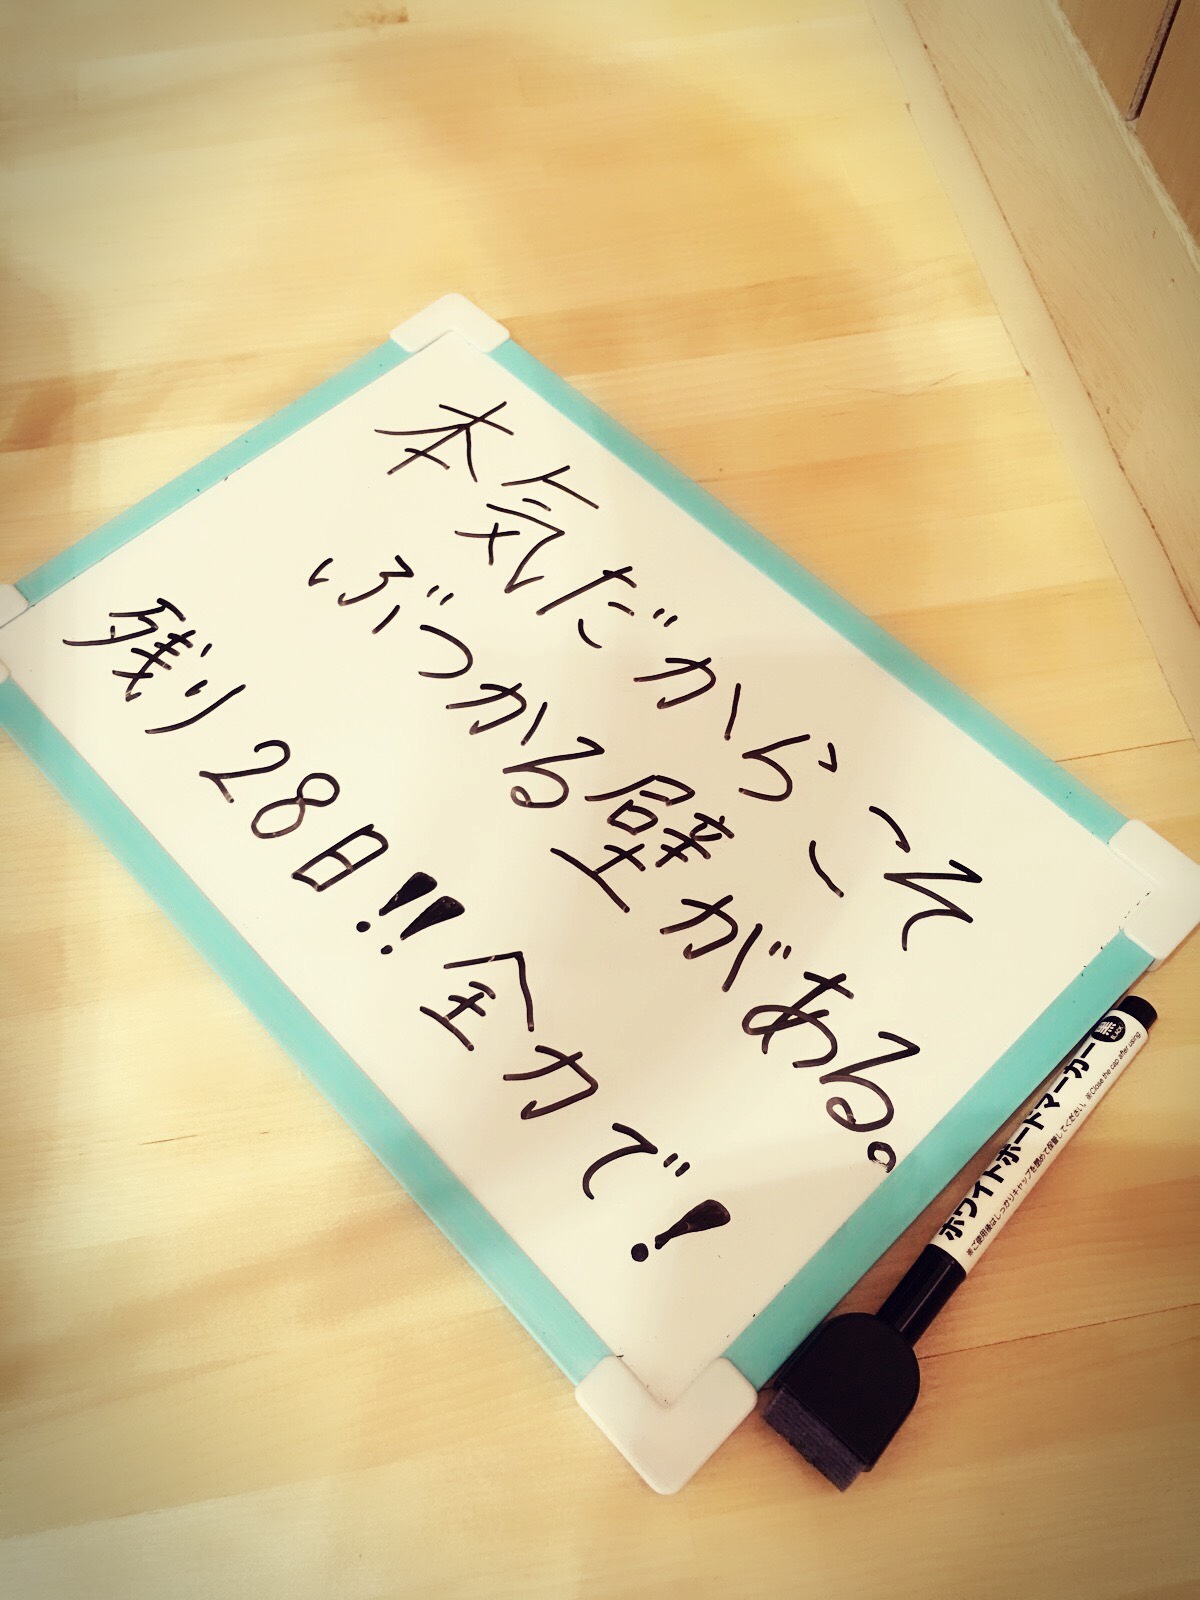 本気だからこそ
ぶつかる壁がある。
残り28日!!全力で!
黒
BLACK
ホワイトボードマーカー
※ご使用後はしっかりキャップを閉めて保管してください。※Close the cap after using